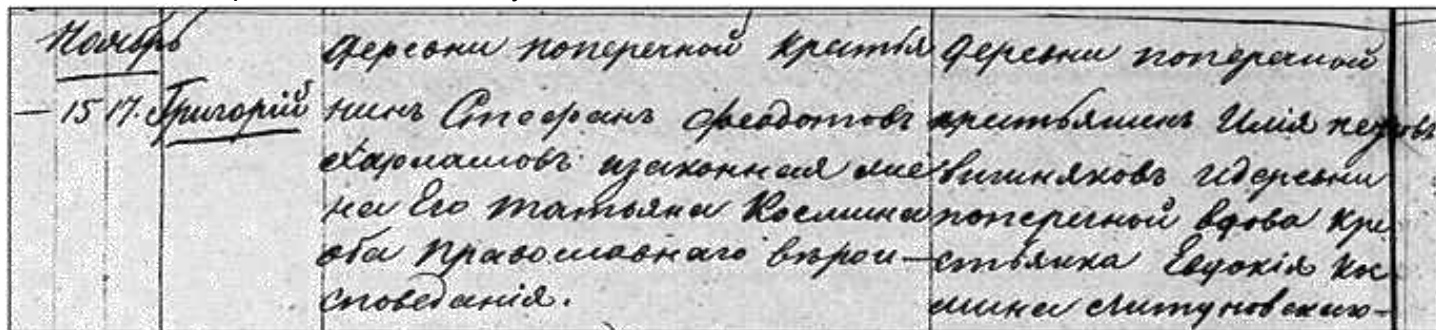 Ноябрь
— 15 17. Григорій
деревни поперечной крестья
нинъ Стефанъ Феодотовъ
Харлашовъ изаконная же
на Его татьяна Космина
оба православнаго вѣрои-
споведанія.
деревни поперечной
крестьянинъ Илія петровъ
вишняковъ идеревни
поперечной вдова кре
стьянка Евдокія Кос
мина